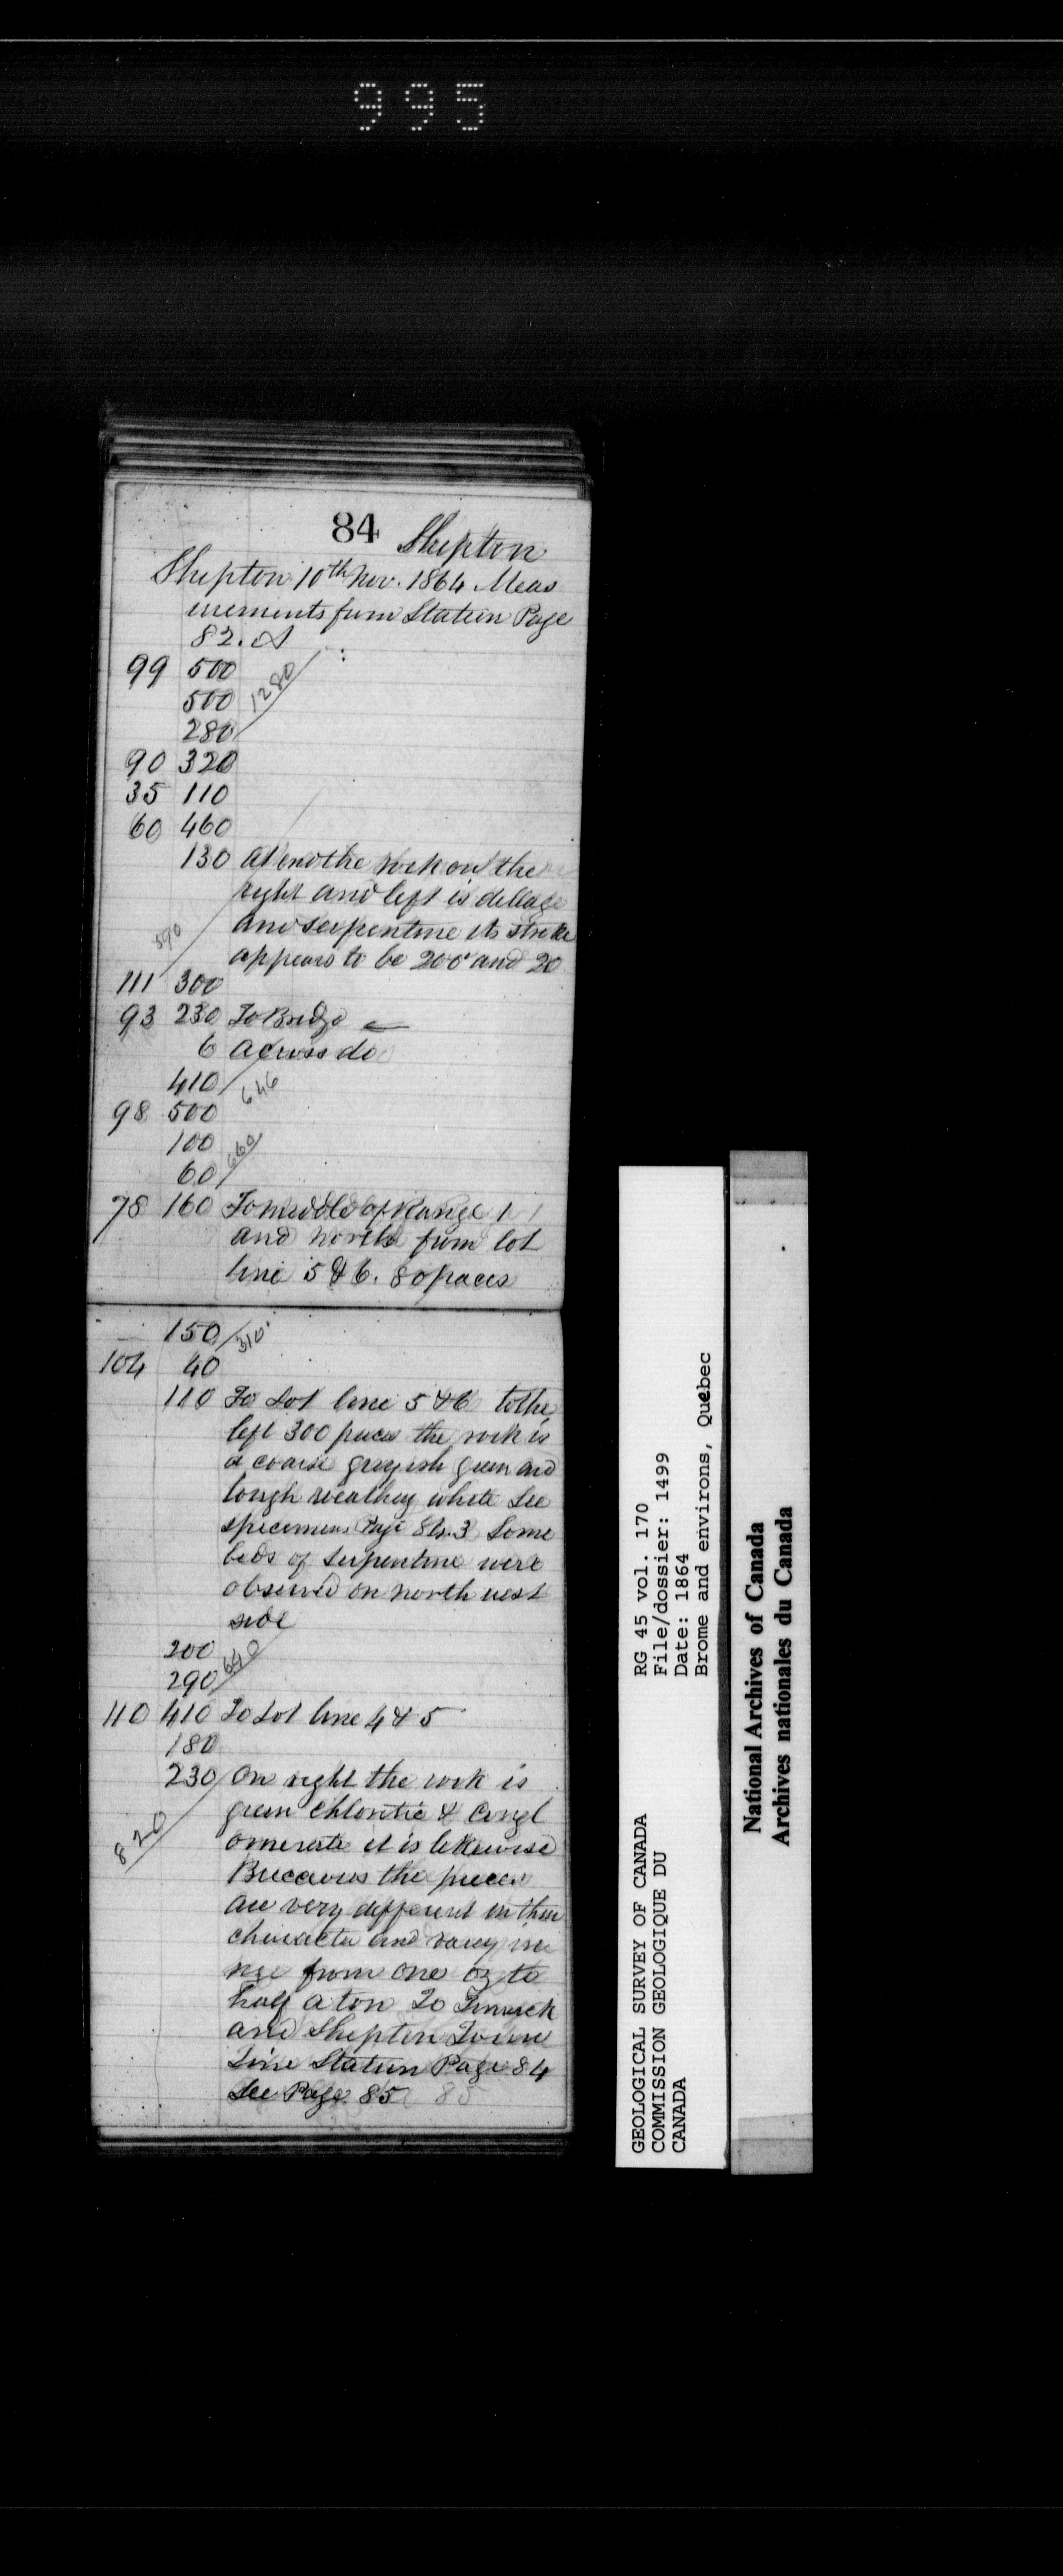 995
84 Shipton
Shipton 10th Nov. 1864 Meas
urements from Station Page
82. A
99 500
500 1280
280
90 320
35 110
60 460
130 at end the rock on the
right and left is dillage
and serpentine its strike
590
appears to be 200° and 20
111 300
93 230 To Bridge
6 across do
410 646
98 500
100
60 660
78 160 To middle of Range 1
and north from lot
line 5 & 6. 80 paces
150 310
104 40
110 To Lot line 5 & 6 to the
left 300 paces the rock is
a coarse greyish green and
tough weathey white See
specimens Page 84.3 Some
beds of Serpentine were
observed on north west
side
200
290 640
110 410 To Lot line 4 & 5
180
230 On right the rock is
green chloritic & Congl
820
omerate it is likewise
the pieces
are very different in their
character and vary in
from one oz to
half a ton To
and Shipton Towne
Line Station Page 84
See Page 85 85
GEOLOGICAL SURVEY OF CANADA
COMMISSION GEOLOGIQUE DU
CANADA
RG 45 vol. 170
File/dossier: 1499
Date: 1864
Brome and environs, Quebec
National Archives of Canada
Archives nationales du Canada